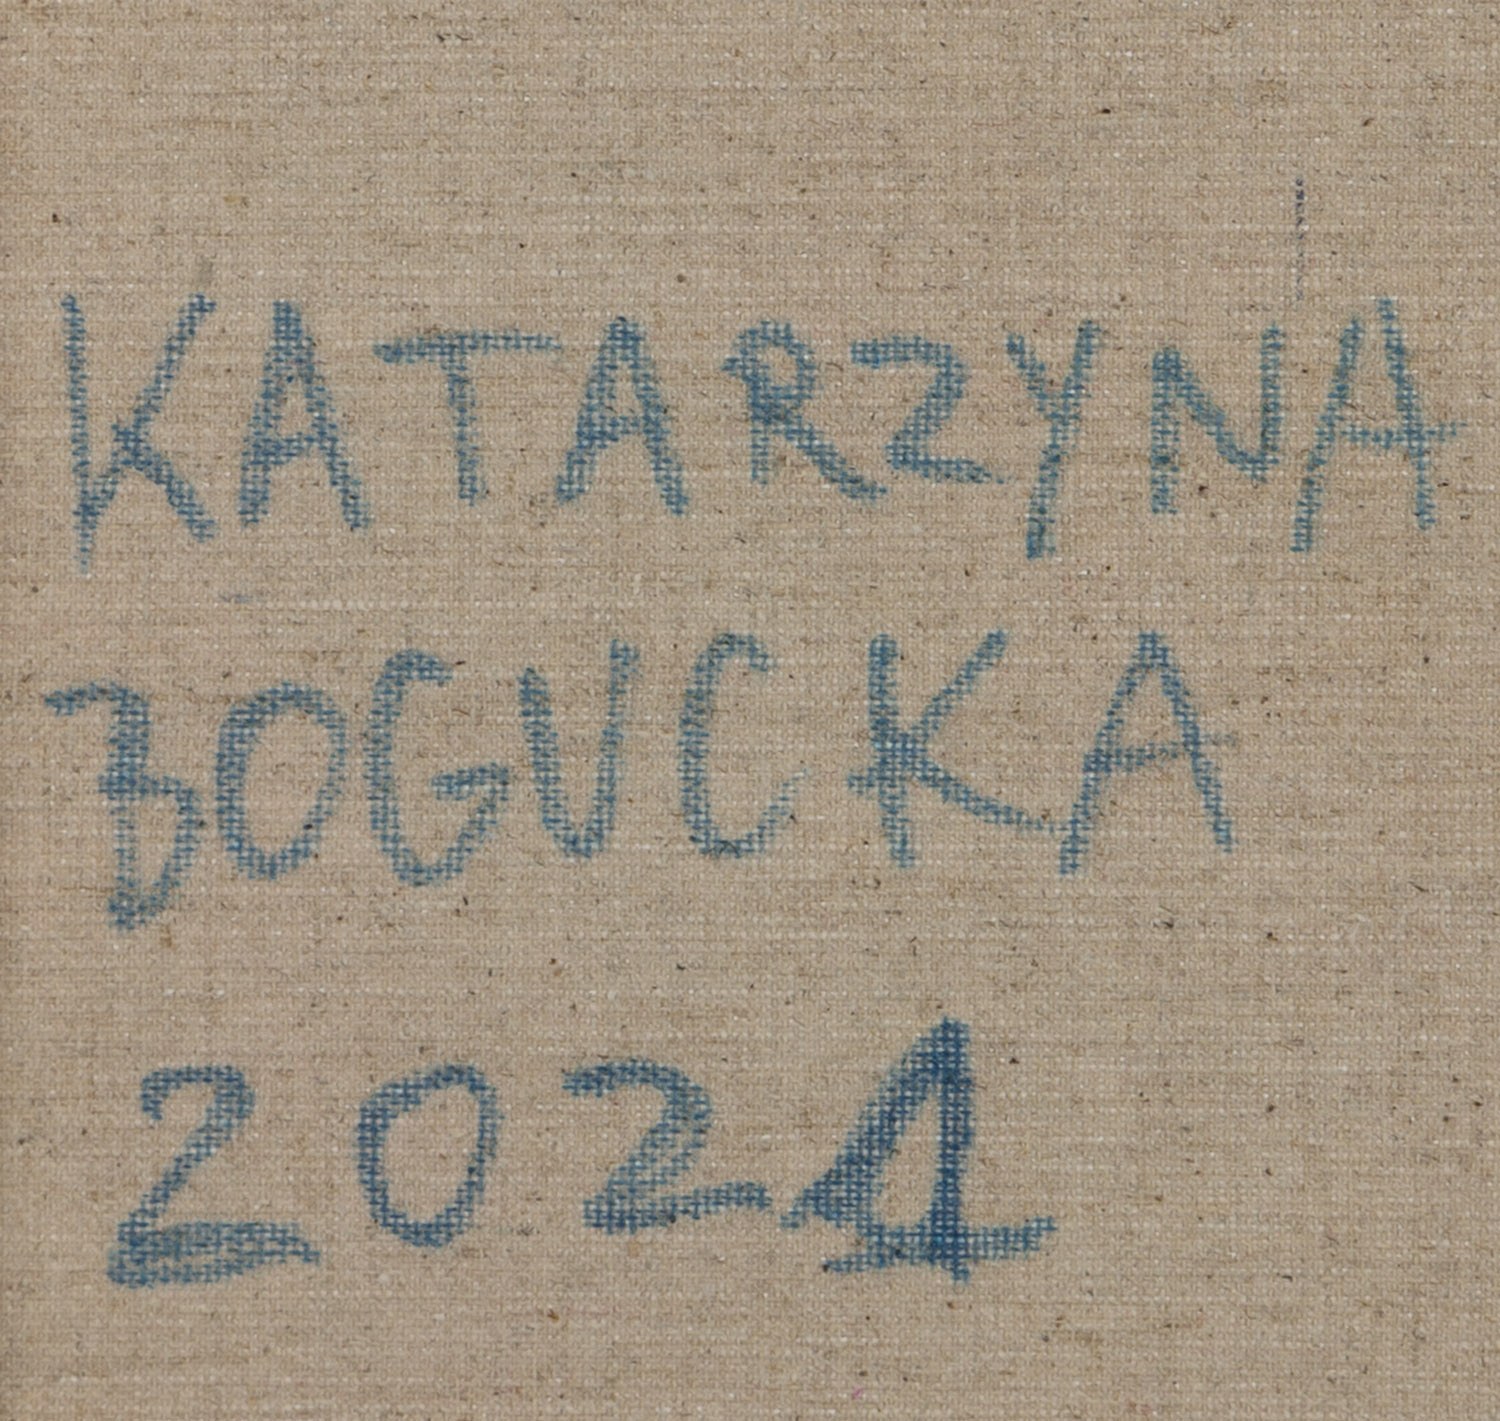 KATARZYNA
BOGUCKA
2021